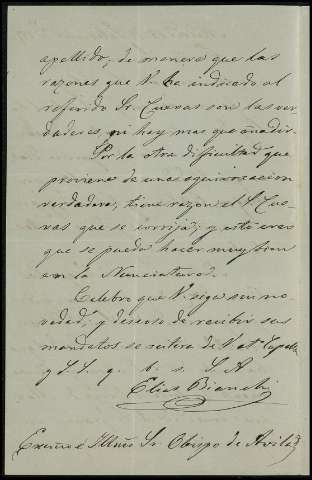 apellido, de manera que las
razones que V. ha indicado al
referido Sr. Cuevas son las ver-
daderas, ni hay mas que añadir.
Por la otra dificultad que
proviene de una equivocacion
verdadera, tiene razon el Sr. Cue-
vas que se corrija, y esto creo
que se puede hacer muy bien
en la Nunciatura.
Celebro que V. siga sin no-
vedad, y deseoso de recibir sus
mandatos se reitera de V. Capn
y S. S. q. b. s. S. A
Elias Bianchi
Excmo é Illmo Sr. Obispo de Avila